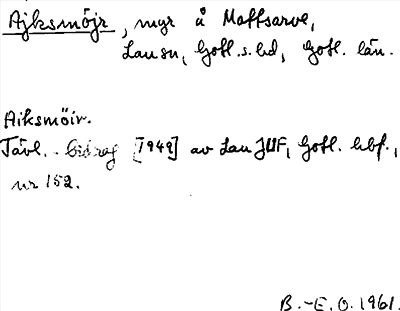 Ajksmöjr, myr å Maffsarve,
Lau sn, Gotl. s. hd, Gotl. län.
Aiksmöir.
Tävl. bidrag [1949] av Lau JUF, Gotl. hbf.,
nr 152.
B.-E. O. 1961.